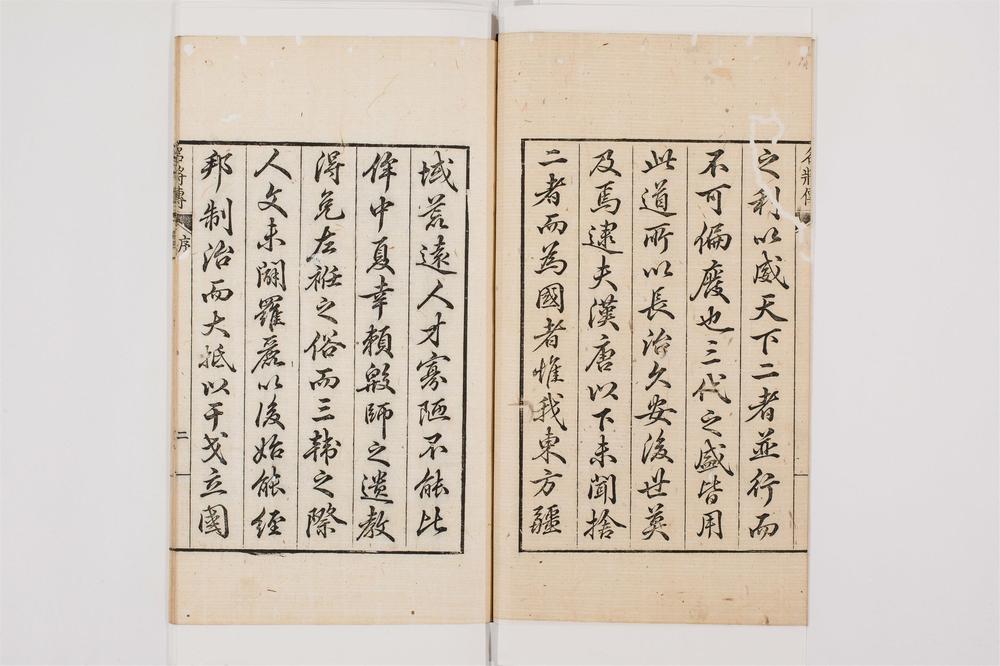 之利以威天下二者並行而
不可偏廢也三代之盛皆用
此道所以長治久安後世莫
及焉逮夫漢唐以下未聞捨
二者而為國者惟我東方疆
域荒遠人才寡陋不能比
侔中夏幸賴殷師之遺教
得免左袵之俗而三韓之際
人文未闢羅麗以後始能經
邦制治而大抵以干戈立國
名將傳 序 二